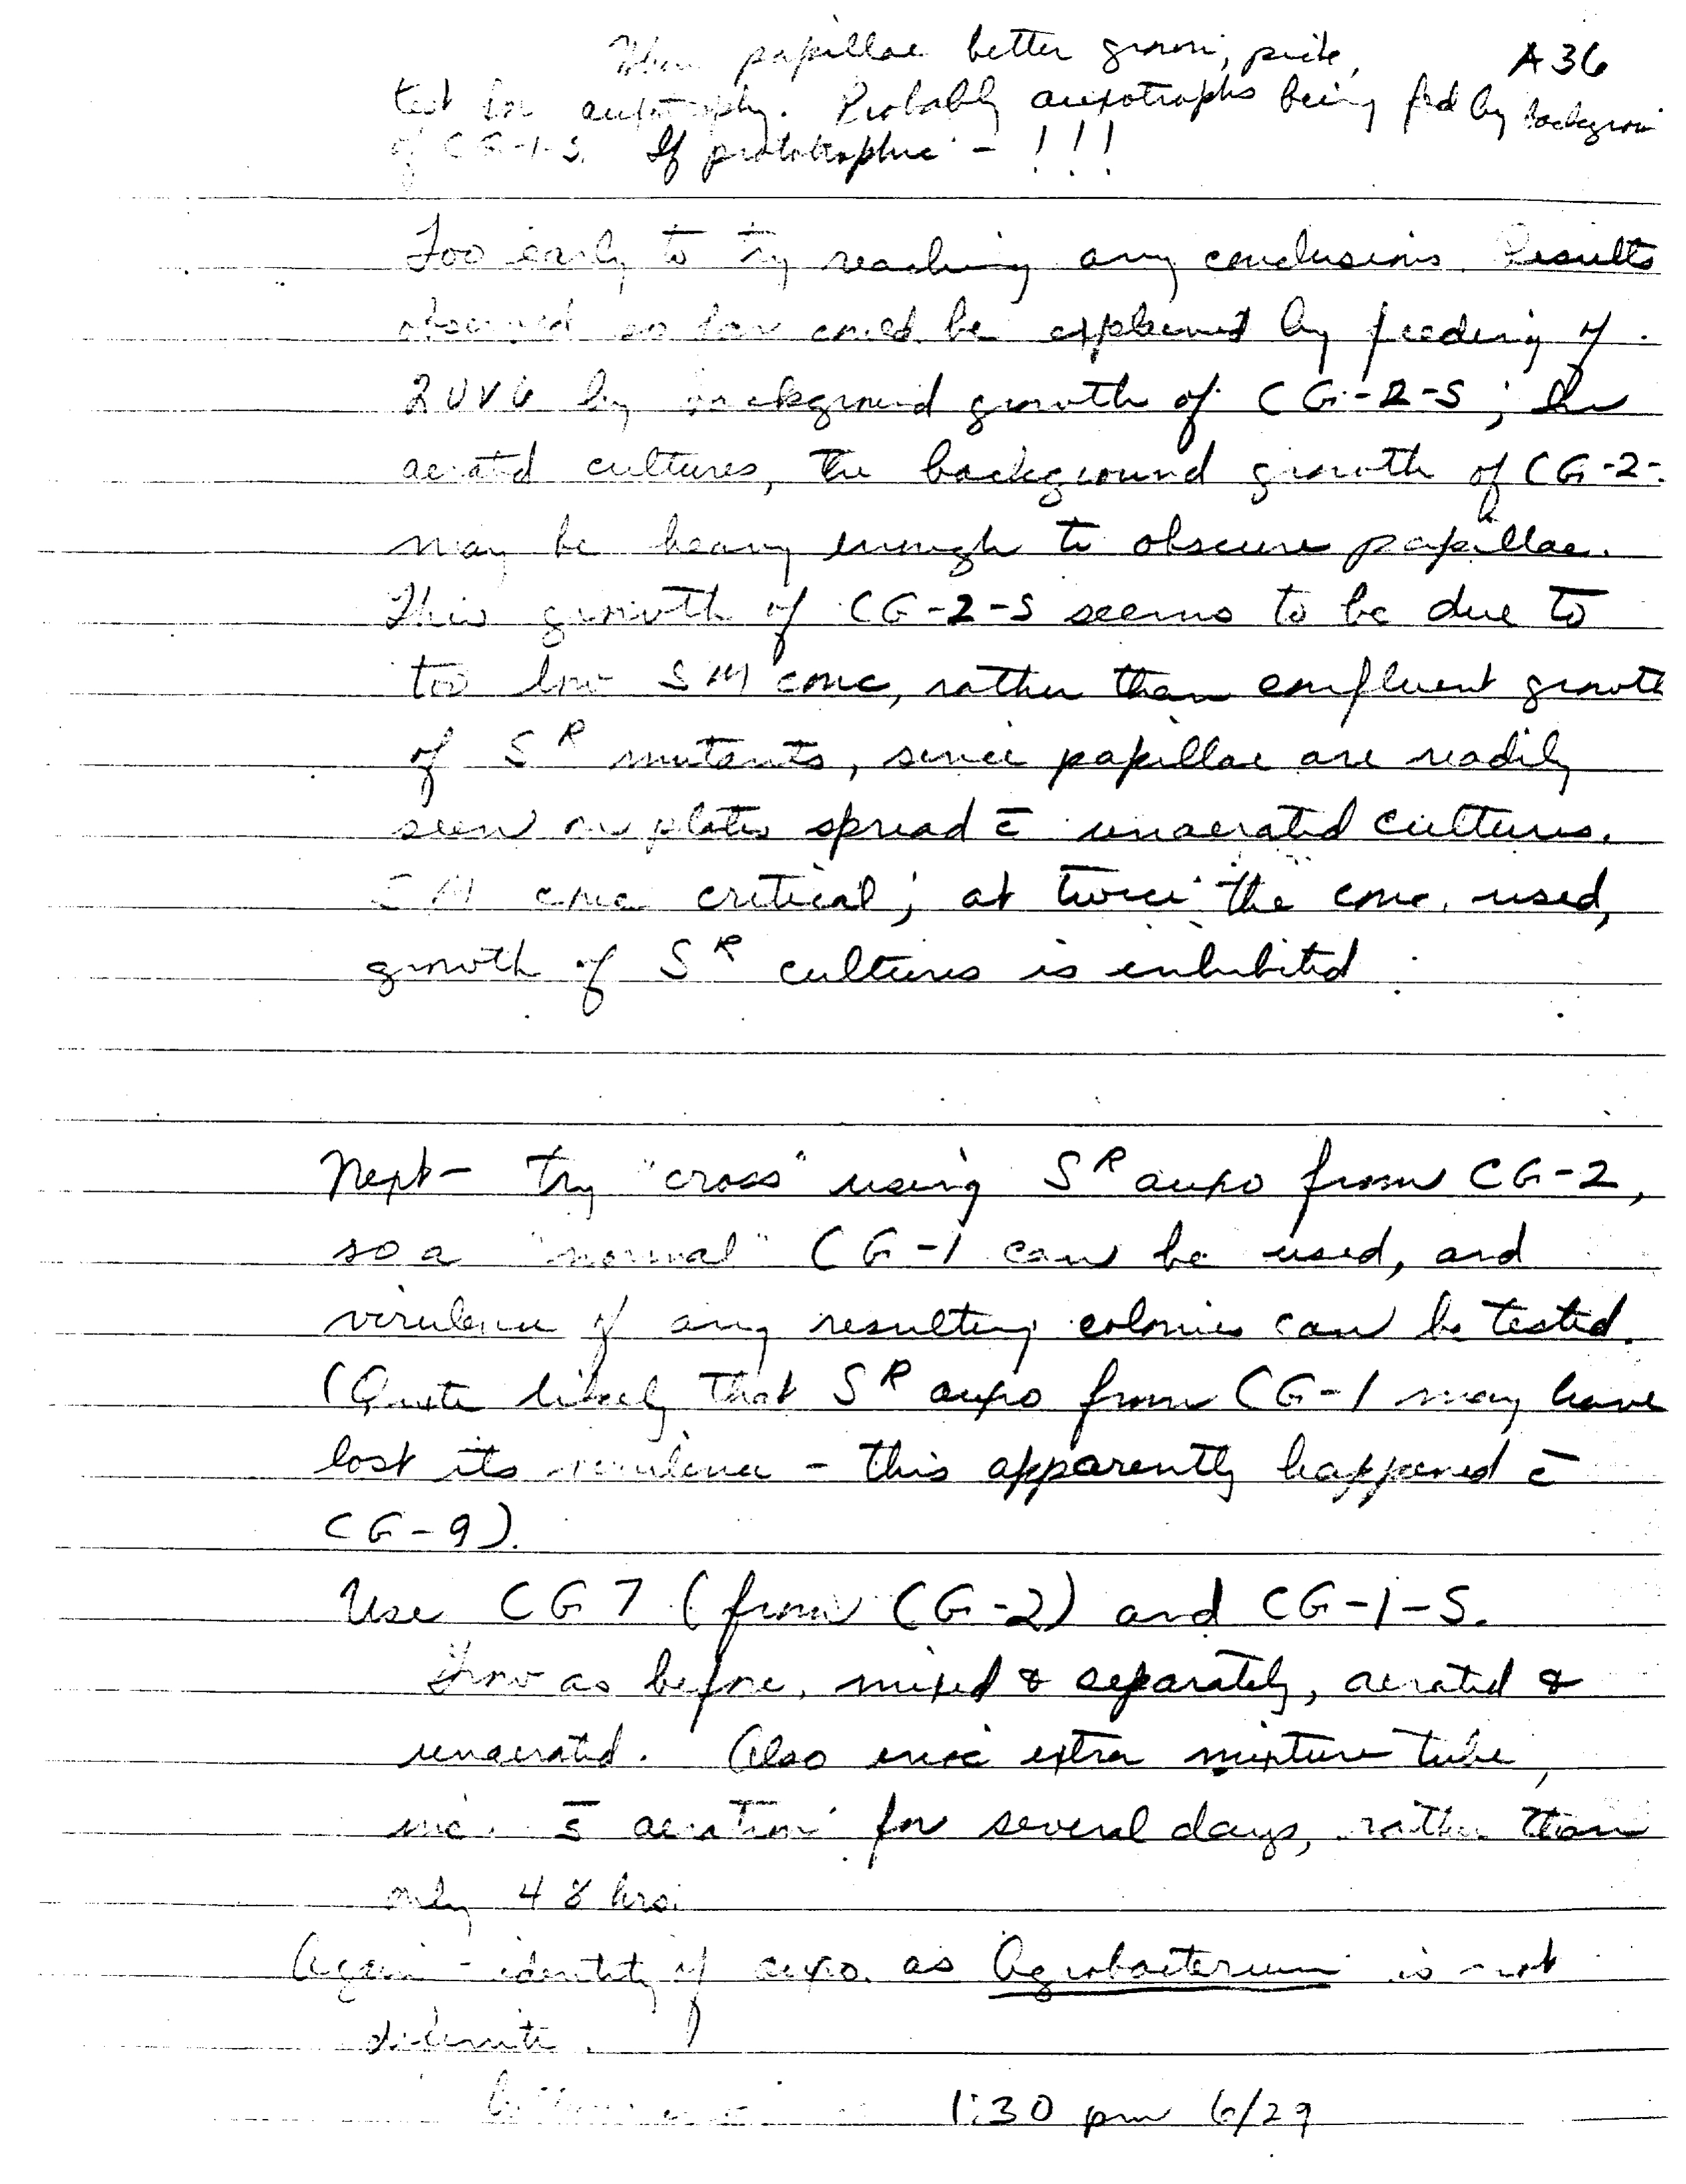 When papillae better grown, pick, A36
test for auxotrophy. Probably auxotrophs being fed by backgrou
of CG-1-S. If prototrophic - !!!
Too early to try reaching any conclusions. Results
observed so far could be explained by feeding of
2UV6 by background growth of CG-2-S; in
aerated cultures, the background growth of CG-2-
may be heavy enough to obscure papillae.
This growth of CG-2-S seems to be due to
too low SM conc, rather than confluent growth
of S^R mutants, since papillae are readily
seen on plates spread c̄ unaerated cultures.
SM conc critical; at twice the conc. used,
growth of S^R cultures is inhibited
Next - try "cross" using S^R auxo from CG-2,
so a "normal" CG-1 can be used, and
virulence of any resulting colonies can be tested.
(Quite likely that S^R auxo from CG-1 may have
lost its virulence - this apparently happened c̄
CG-9).
Use CG7 (from CG-2) and CG-1-S.
Grow as before, mixed & separately, aerated &
unaerated. Also extra mixture tube,
inc. s̄ aeration for several days, rather than
only 48 hrs.
Again - identity of auxo. as Agrobacterium is not
definite.
1:30 pm 6/29